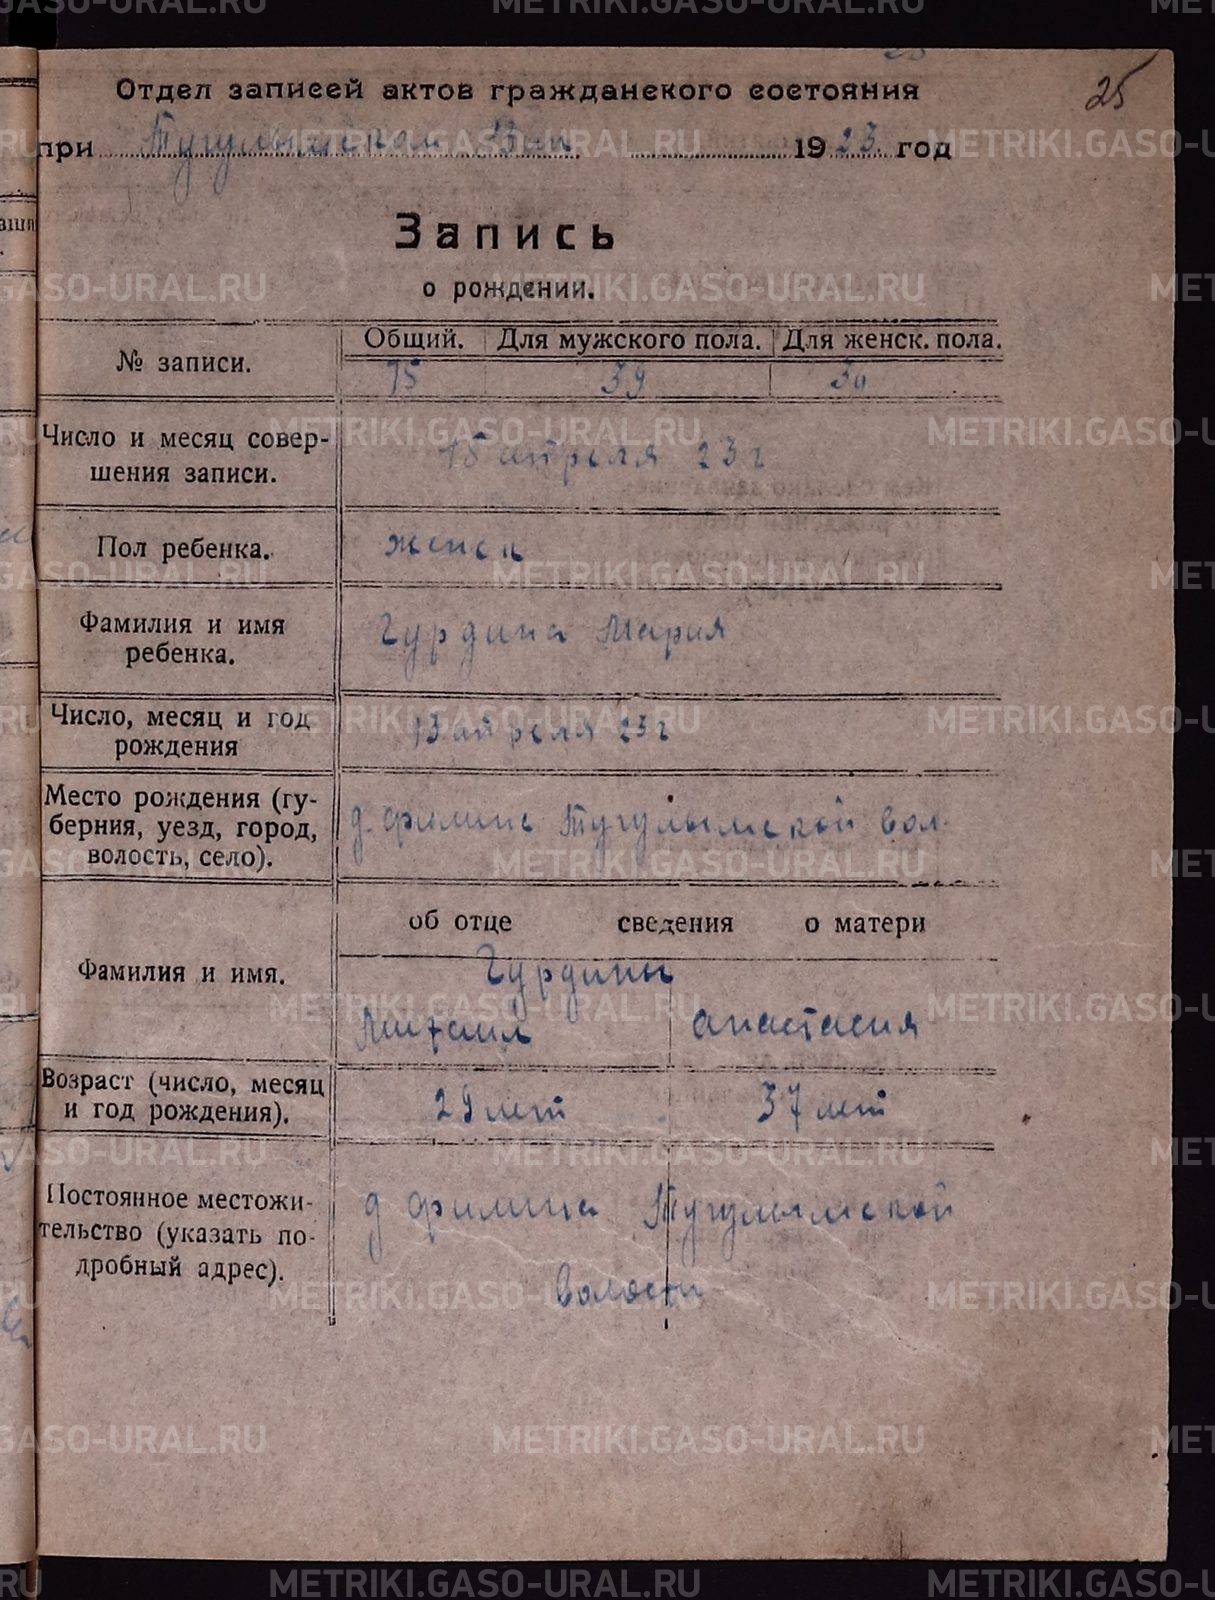 25
Отдел записей актов гражданского состояния
при Тугулымском 1923 год
Запись
о рождении.
№ записи.
Общий. Для мужского пола. Для женск. пола.
75 39
Число и месяц совер-
шения записи.
15 апреля 23 г
Пол ребенка.
женск
Фамилия и имя
ребенка.
Гурдина Мария
Число, месяц и год
рождения
13 апреля 23 г
Место рождения (гу-
берния, уезд, город,
волость, село).
д. Филина Тугулымской вол.
об отце сведения о матери
Фамилия и имя.
Гурдины
Михаил Анастасия
Возраст (число, месяц
и год рождения).
29 лет 37 лет
Постоянное местожи-
тельство (указать по-
дробный адрес).
д Филина Тугулымской
волости
METRIKI.GASO-URAL.RU